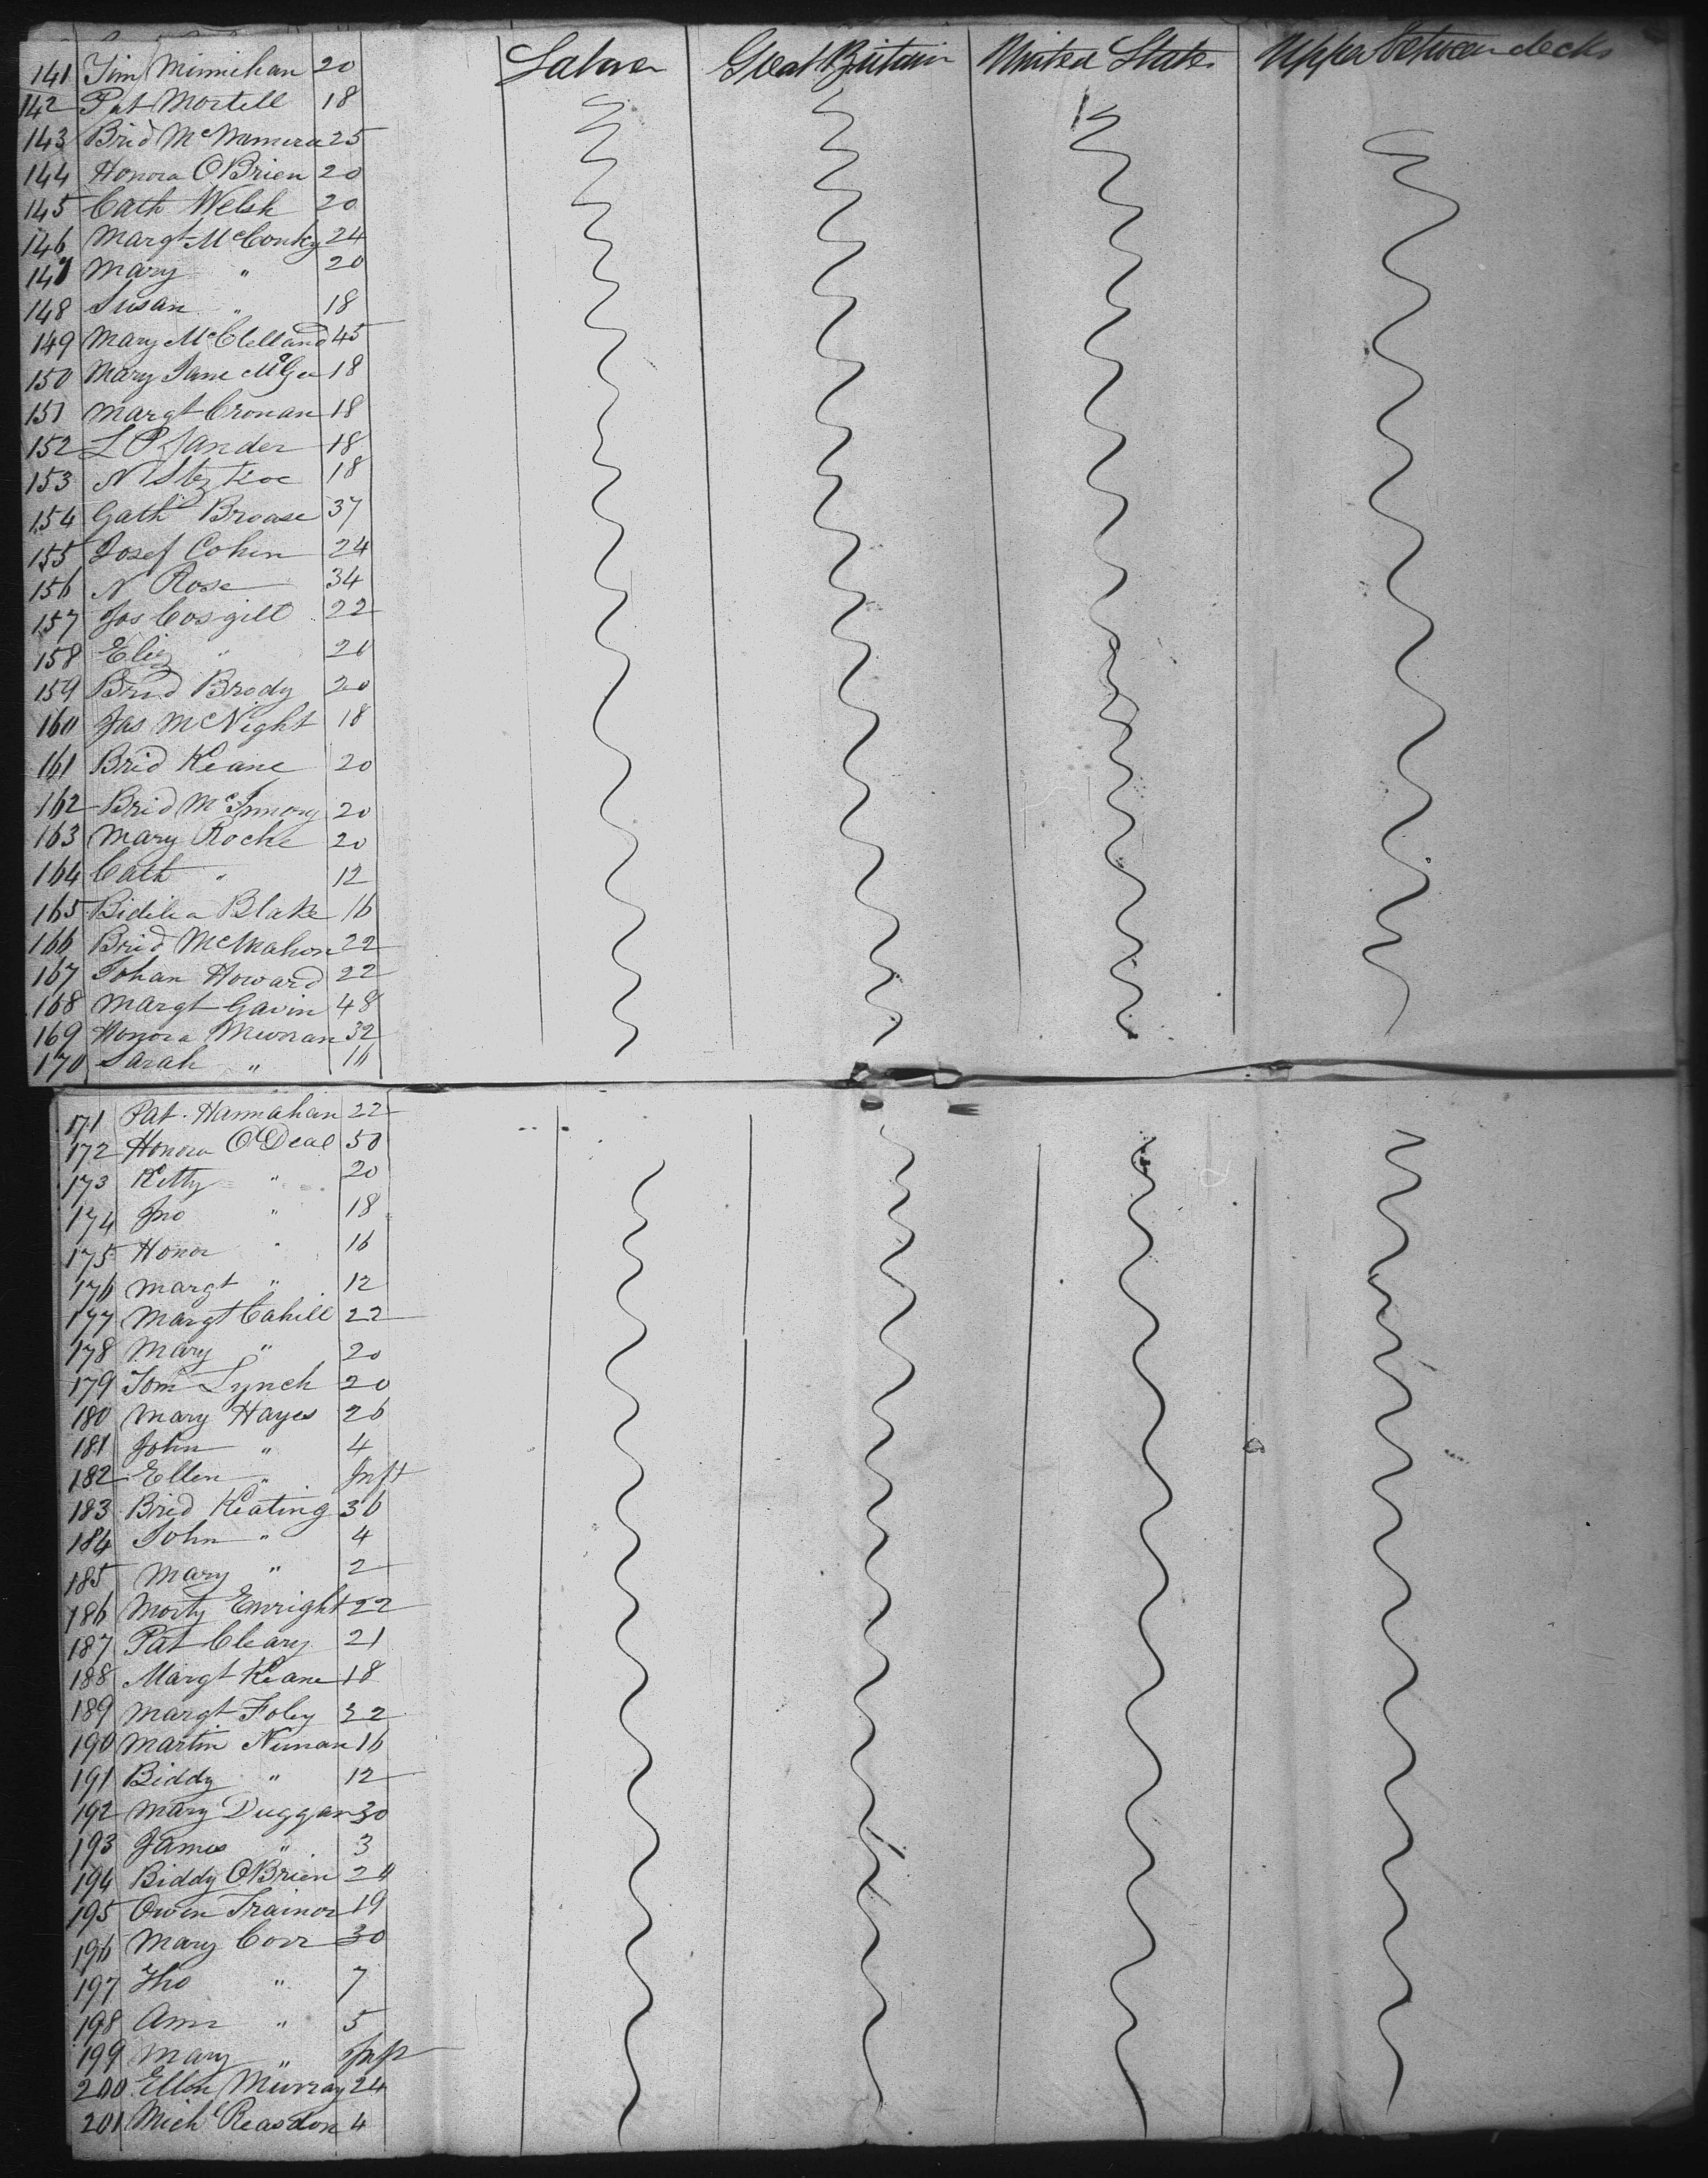 141 Tim Minnihan 20 Labor Great Britain United States Upper between decks
142 Pat Mortell 18
143 Brid McNamera 25
144 Honora OBrien 20
145 Cath Welsh 20
146 Margt McConky 24
147 Mary " 20
148 Susan " 18
149 Mary McClelland 45
150 Mary Jane McGee 18
151 Margt Cronan 18
152 L P Jander 18
153 N 18
154 Cath Broase 37
155 Josef Cohen 24
156 N Rose 34
157 Jas Cosgill 22
158 Eliz " 26
159 Brid Brody 20
160 Jas McNight 18
161 Brid Keane 20
162 Brid 20
163 Mary Roche 20
164 Cath " 12
165 Bidelia Blake 16
166 Brid McMahon 22
167 Johan Howard 22
168 Margt Gavin 48
169 Honora 32
170 Sarah " 16
171 Pat Hannahan 22
172 Honora O'Deal 50
173 Kitty " 20
174 Jno " 18
175 Honor " 16
176 Margt " 12
177 Margt Cahill 22
178 Mary " 20
179 Tom Lynch 20
180 Mary Hayes 26
181 John " 4
182 Ellen " Inft
183 Brid Keating 36
184 John " 4
185 Mary " 2
186 Morty Enright 22
187 Pat Cleary 21
188 Margt Keane 18
189 Margt Foley 22
190 Martin Nunan 16
191 Biddy " 12
192 Mary Duggan 30
193 James " 3
194 Biddy OBrien 20
195 Owen Trainor 19
196 Mary Corr 30
197 Tho " 7
198 Ann " 5
199 Mary " Inft
200 Ellen Murray 24
201 Michl Reasdon 4